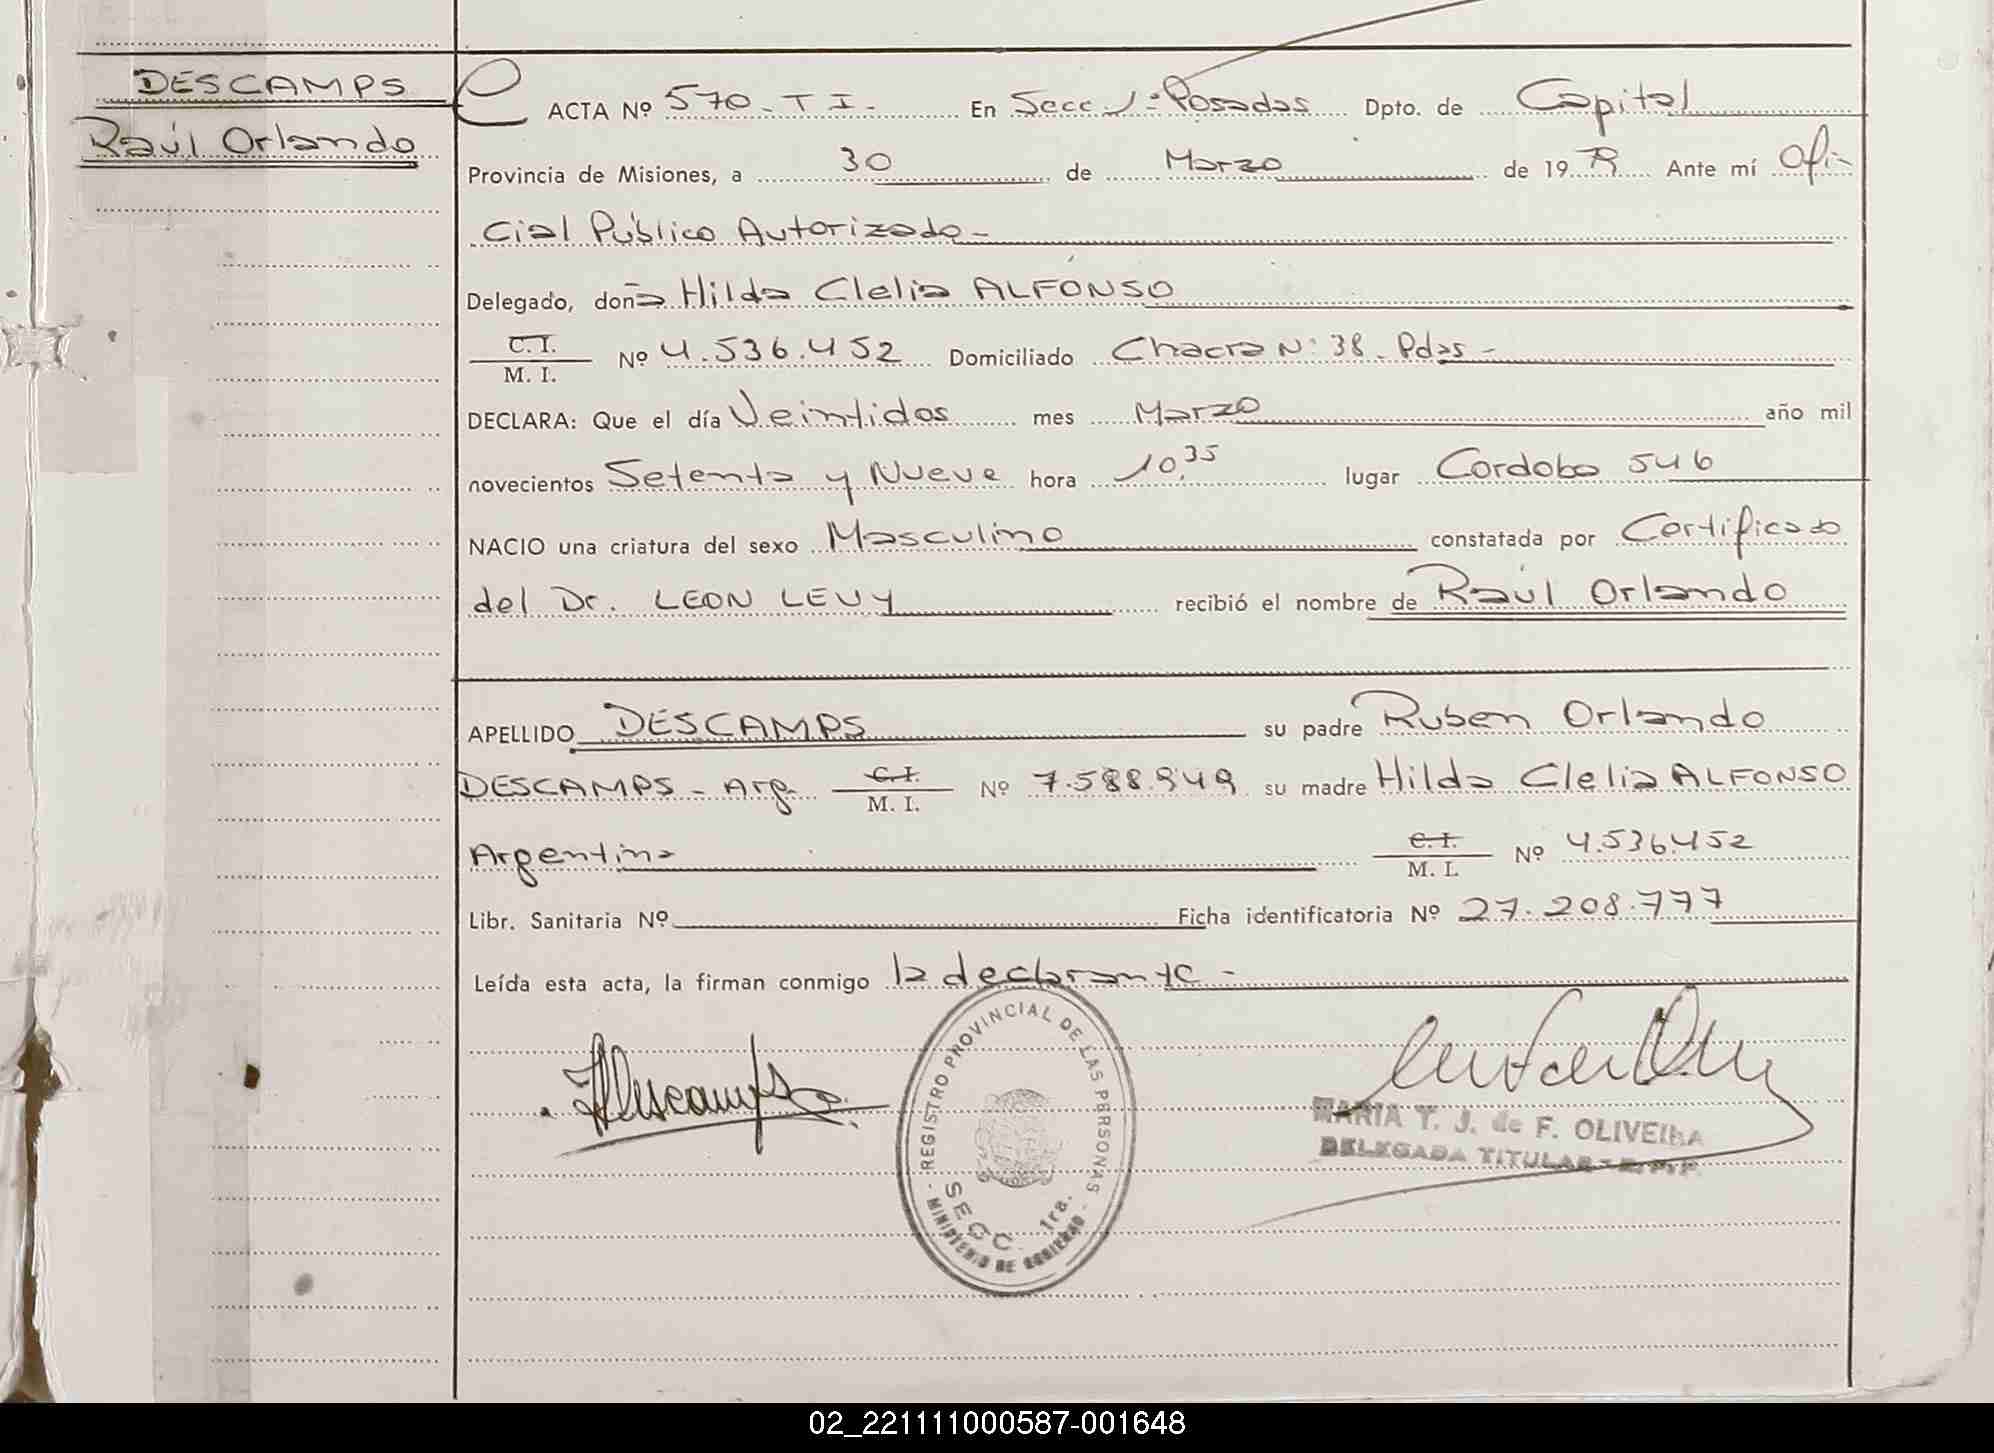 DESCAMPS
Raúl Orlando
ACTA Nº 570-T I- En Secc 1ª Posadas Dpto. de Capital
Provincia de Misiones, a 30 de Marzo de 1979 Ante mí Ofi-
cial Público Autorizado-
Delegado, doña Hilda Clelia ALFONSO
C. I. / M. I. Nº 4.536.452 Domiciliado Chacra Nº 38 - Pdas -
DECLARA: Que el día Veintidos mes Marzo año mil
novecientos Setenta y Nueve hora 10,35 lugar Cordoba 546
NACIO una criatura del sexo Masculino constatada por Certificado
del Dr. LEON LEVY recibió el nombre de Raúl Orlando
APELLIDO DESCAMPS su padre Ruben Orlando
DESCAMPS - Arg. C. I. / M. I. Nº 7.588.949 su madre Hilda Clelia ALFONSO
Argentina C. I. / M. I. Nº 4.536.452
Libr. Sanitaria Nº Ficha identificatoria Nº 27.208.777
Leída esta acta, la firman conmigo la declarante -
REGISTRO PROVINCIAL DE LAS PERSONAS
SECC. 1ra.
- MINISTERIO DE GOBIERNO -
MARIA T. J. de F. OLIVEIRA
DELEGADA TITULAR - R. P. P.
02_221111000587-001648